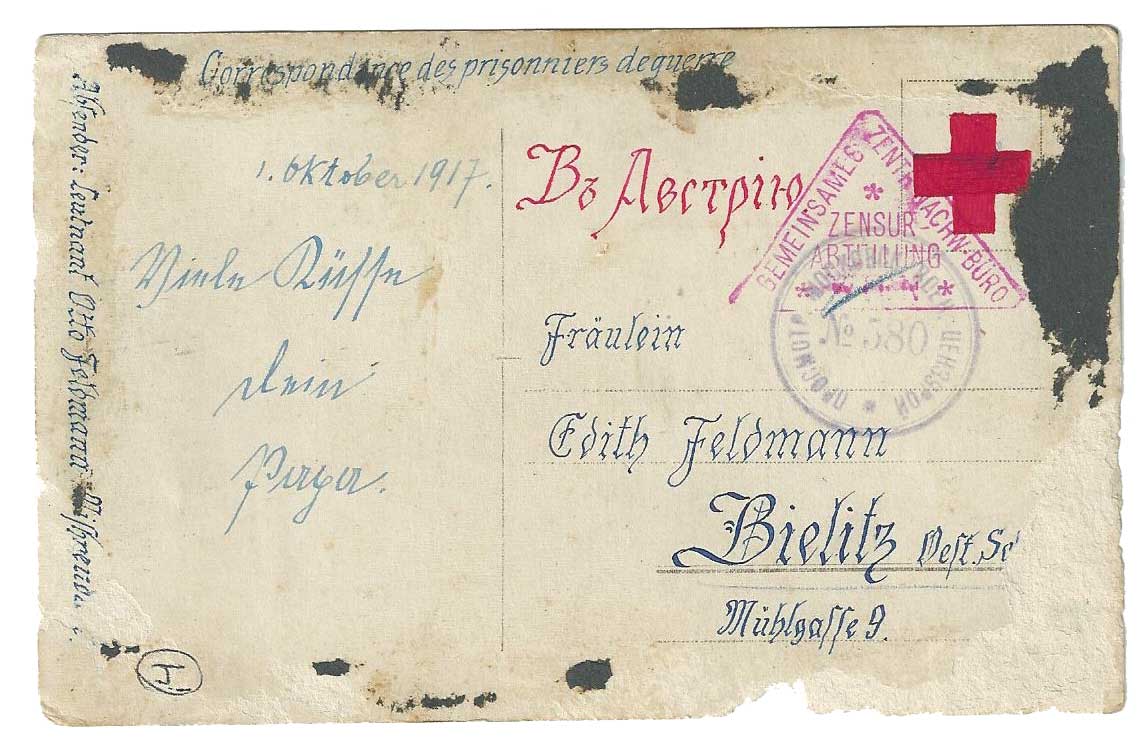 Correspondance des prisonniers de guerre
Absender: Leutnant Otto Feldmann
1. Oktober 1917.
Viele Küsse
dein
Papa.
Въ Австрію
GEMEINSAMES ZENTR. NACHW-BÜRO
ZENSUR
ABTEILUNG
№ 580
Fräulein
Edith Feldmann
Bielitz Oest.
Mühlgasse 9.